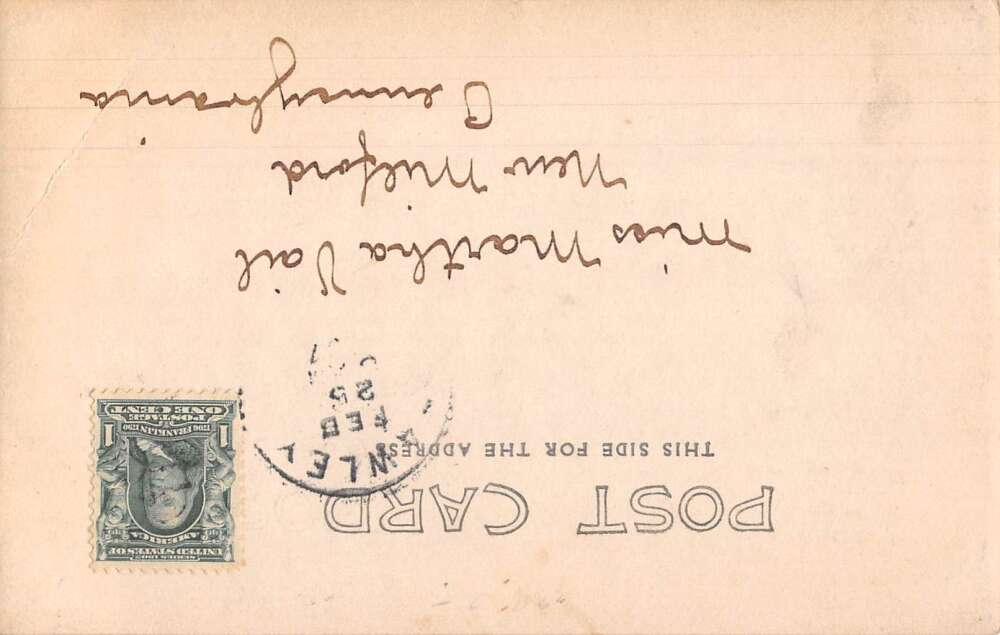 POST CARD
THIS SIDE FOR THE ADDRESS
SERIES 1902
UNITED STATES OF
AMERICA
1706 FRANKLIN 1790
POSTAGE
1 ONE CENT 1
FEB
25
Miss Martha Vail
New Milford
Pennsylvania